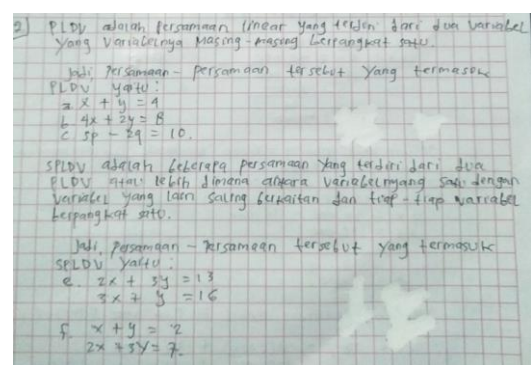 2) PLDV adalah Persamaan linear yang terdiri dari dua variabel
yang variabelnya masing-masing berpangkat satu.
Jadi, Persamaan-persamaan tersebut yang termasuk
PLDV yaitu:
a. x + y = 4
b. 4x + 2y = 8
c. 5p - 2q = 10.
SPLDV adalah beberapa persamaan yang terdiri dari dua
PLDV atau lebih dimana antara variabelnyang satu dengan
variabel yang lain saling berkaitan dan tiap-tiap variabel
berpangkat satu.
Jadi, Persamaan-persamaan tersebut yang termasuk
SPLDV yaitu:
e. 2x + 3y = 13
3x + y = 16
f. x + y = 2
2x + 3y = 7.